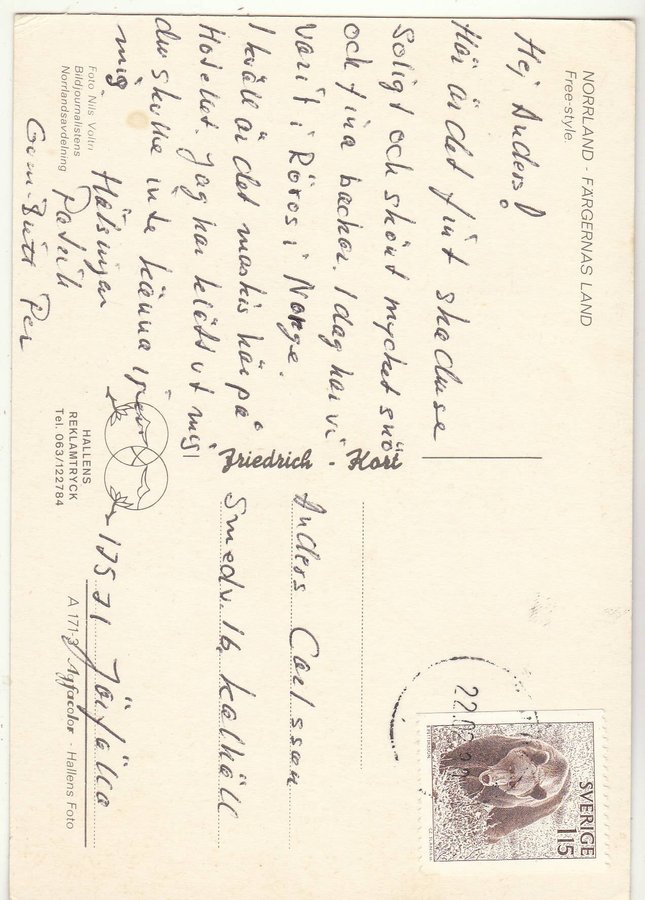 NORRLAND - FÄRGERNAS LAND
Free-style
Hej Anders!
Här är det fint shaduse
soligt och skönt mycket snö
och fina backar. I dag har vi
varit i Röros i Norge.
I kväll är det maskis här på
Hotellet. Jag har klätt ut mig
du skulle inte känna igen
mig.
Hälsningar
Patrik
Gun-Britt Per
Foto Nils Voltn
Bildjournalistens
Norrlandsavdelning
HALLENS
REKLAMTRYCK
Tel. 063/122784
Friedrich - Kort
SVERIGE
115
22.02.80
Anders Carlsson
Smedv. 16, Kallhäll
175 71 Järfälla
A 171-3 Agfacolor - Hallens Foto